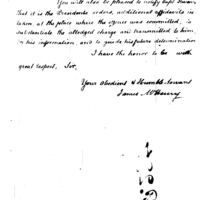 You will also be pleased to notify Capt.
that it is the Presidents orders, additional affidavits be
taken, at the place where the offence was committed, to
substantiate the alledged charge and transmitted to him,
for his information, and to guide his future determination
I have the honor to be with
great respect, Sir,
Your Obedient & Humble Servant
James McHenry